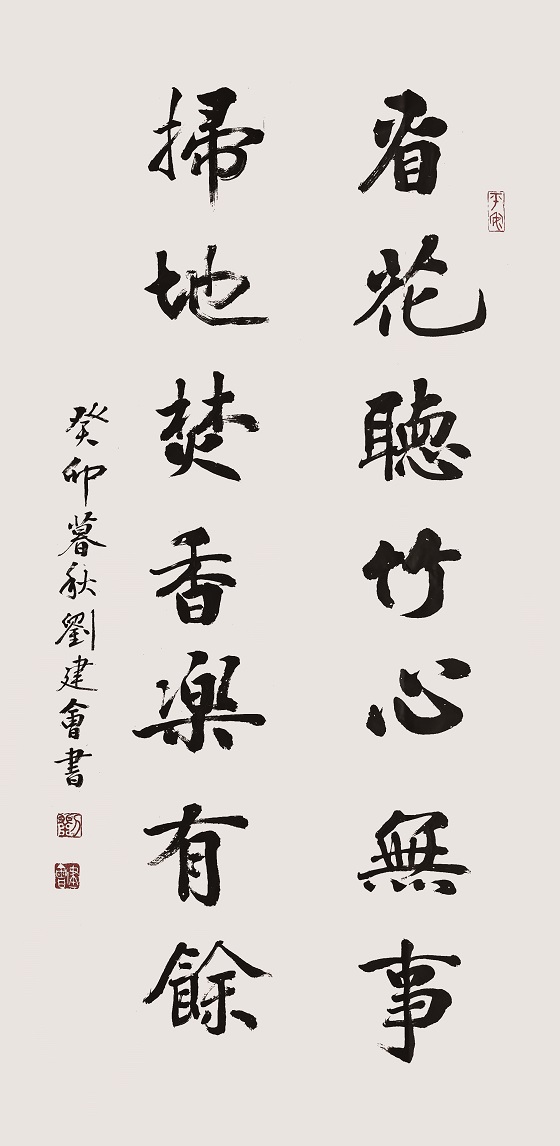 看花聽竹心無事
掃地焚香樂有餘
癸卯暮秋劉建會書
平安
劉
建會